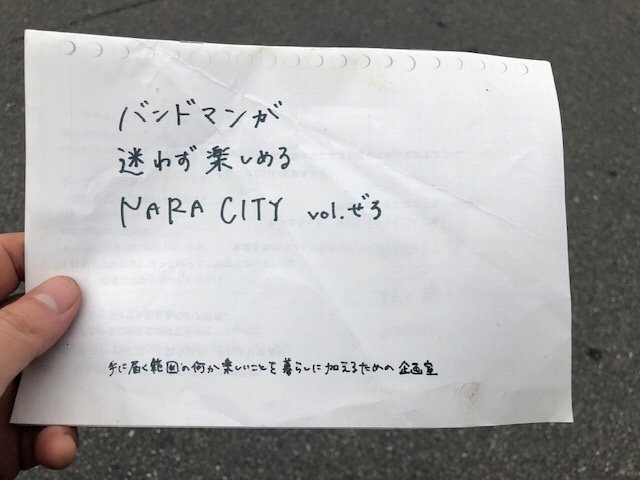 バンドマンが
迷わず楽しめる
NARA CITY vol.ぜろ
手に届く範囲の何か楽しいことを暮らしに加えるための企画室